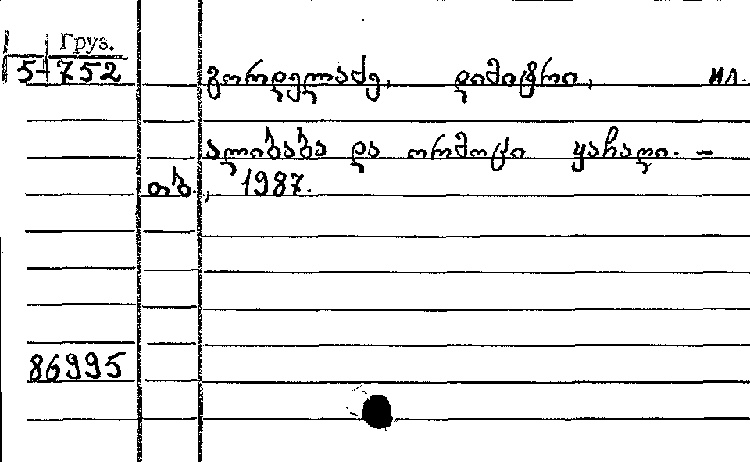 Груз.
5-752
გორდელაძე, დიმიტრი, ил.
ალიბაბა და ორმოცი ყაჩაღი. –
თბ., 1987.
86995